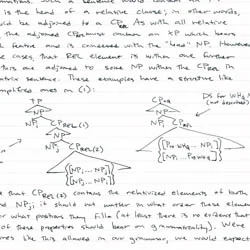 such a sentence would
is the head of a relative clause; in other words,
the adjoined to a CP REL. As with all relative
the adjoined CP REL must contain an XP which bears
feature and is coindexed with the "head" NP. However
cases that REL element is within one further
this are adjoined to some NP within the CP REL in
matrix sentence. These examples have a structure like
simplified ones in (1):
TP
CP REL
NP
NPi CP REL
DS for WH
(not depicted
NP
NPi CP REL (1)
NP
NPj CP REL (2)
[NPi... NPj]
[NPj... NPi]
that CP REL (2) contains the relativized elements of both
NPj; it should not matter in what order these elements
or what positions they fill (at least there is no evidence that
of these properties should bear on grammaticality). If we
like this allowed in our grammar, we would expect